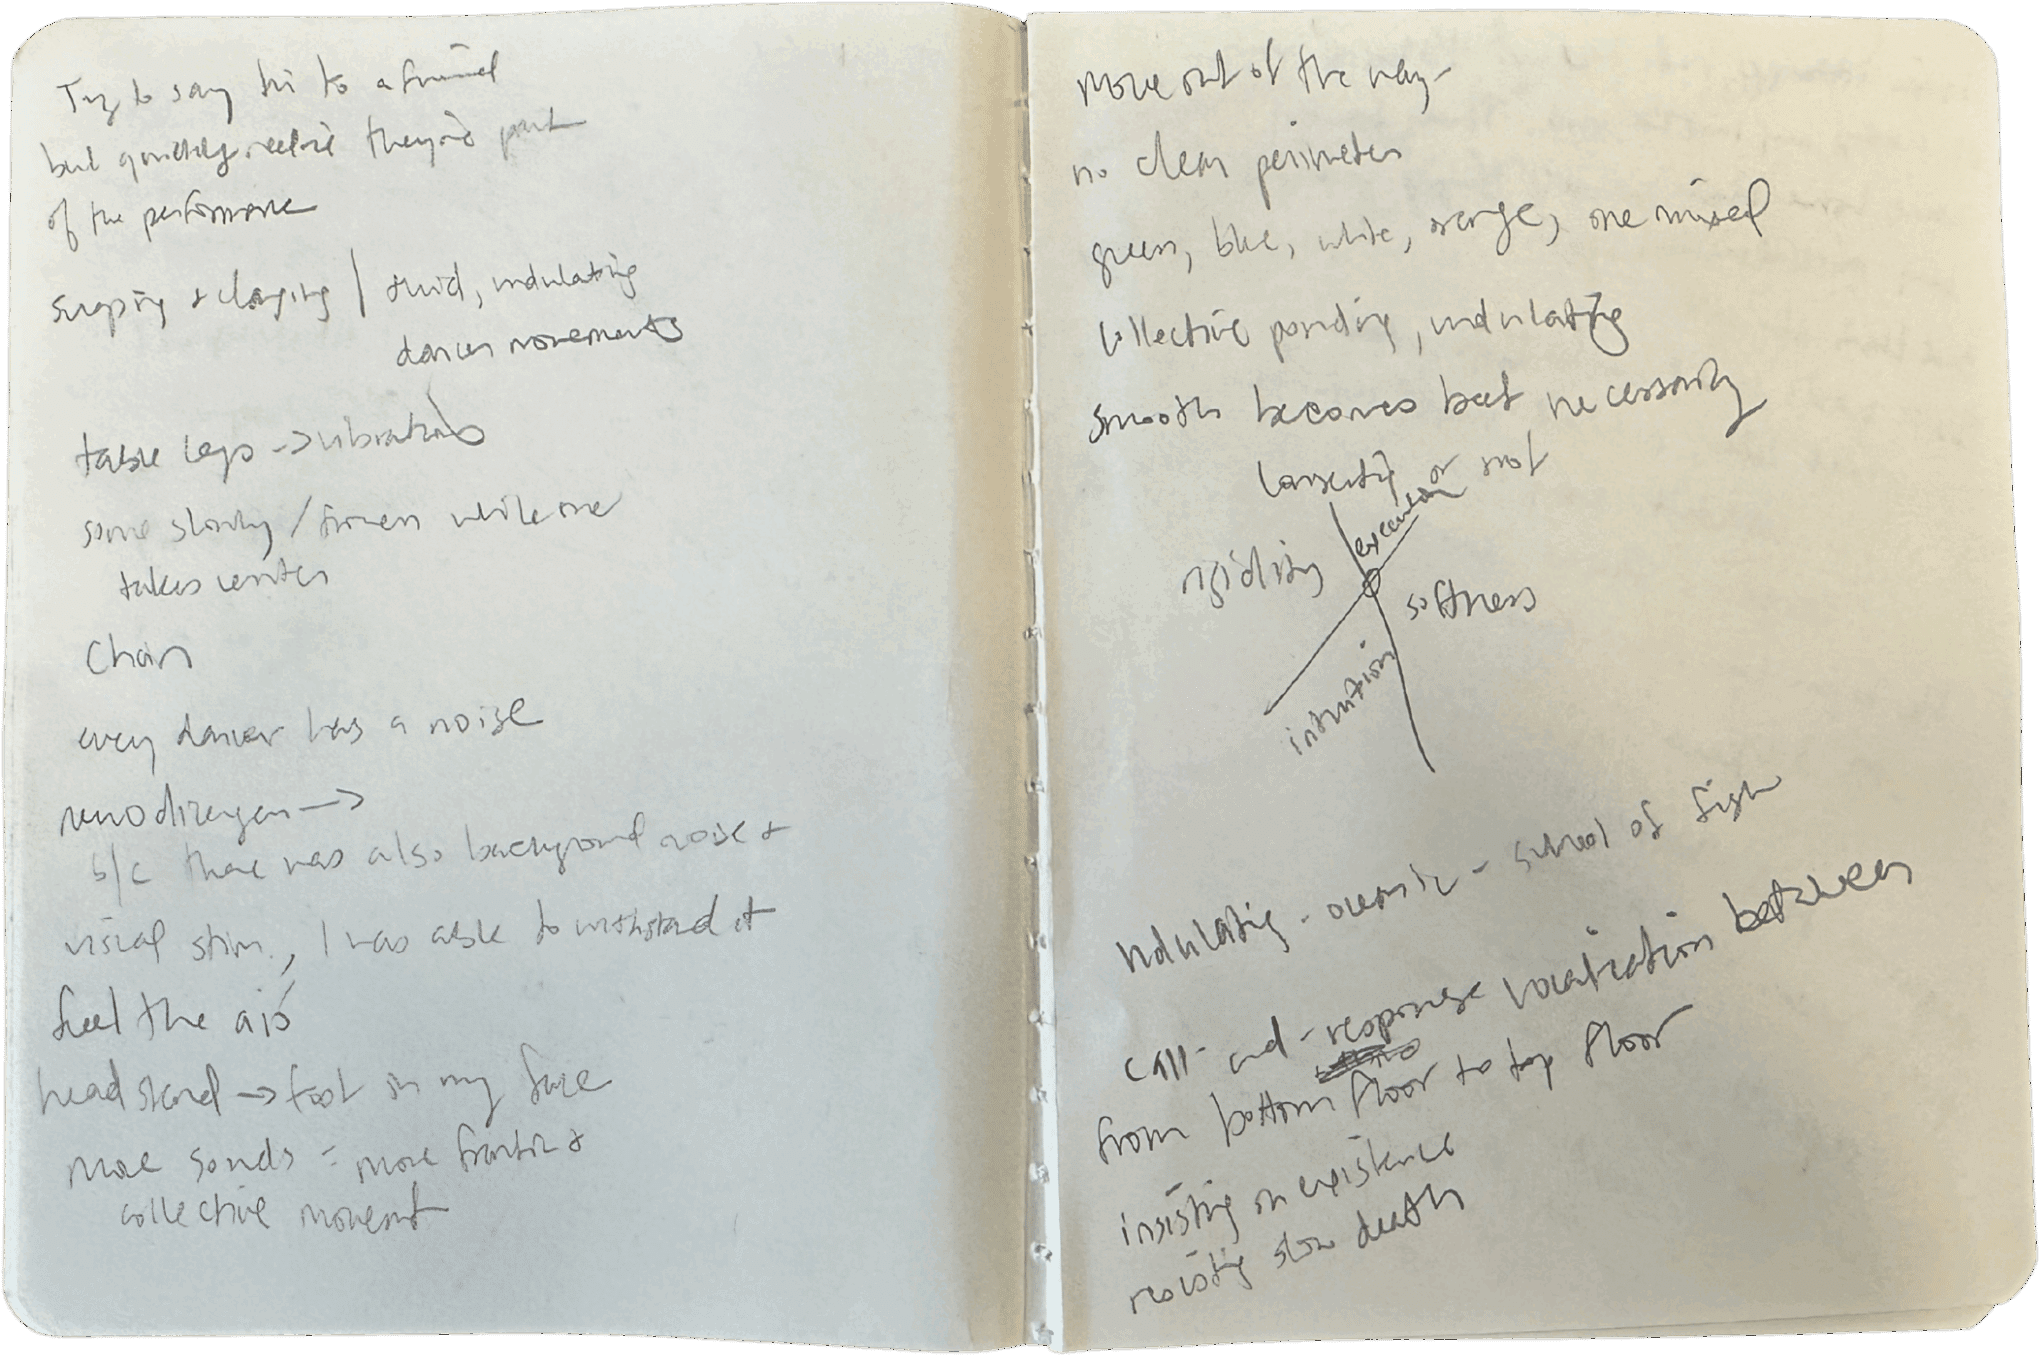 Try to say hi to a friend
but quickly realize they're part
of the performance
snapping + clanging / fluid, undulating
dancer movements
table legs -> vibrations
some slowly / frozen while one
takes center
Chain
every dancer has a noise
->
b/c there was also background noise +
visual stim., I was able to withstand it
feel the air
headstand -> foot in my face
more sounds = more frantic +
collective movement
Move out of the way -
no clear perimeter
green, blue, white, orange, one mixed
collective pounding, undulating
smooth becomes but necessarily
or not
execution
rigidity
softness
intuition
undulating - oceanic - school of fish
call-and-response vocalization between
from bottom floor to top floor
insisting on existence
resisting slow death